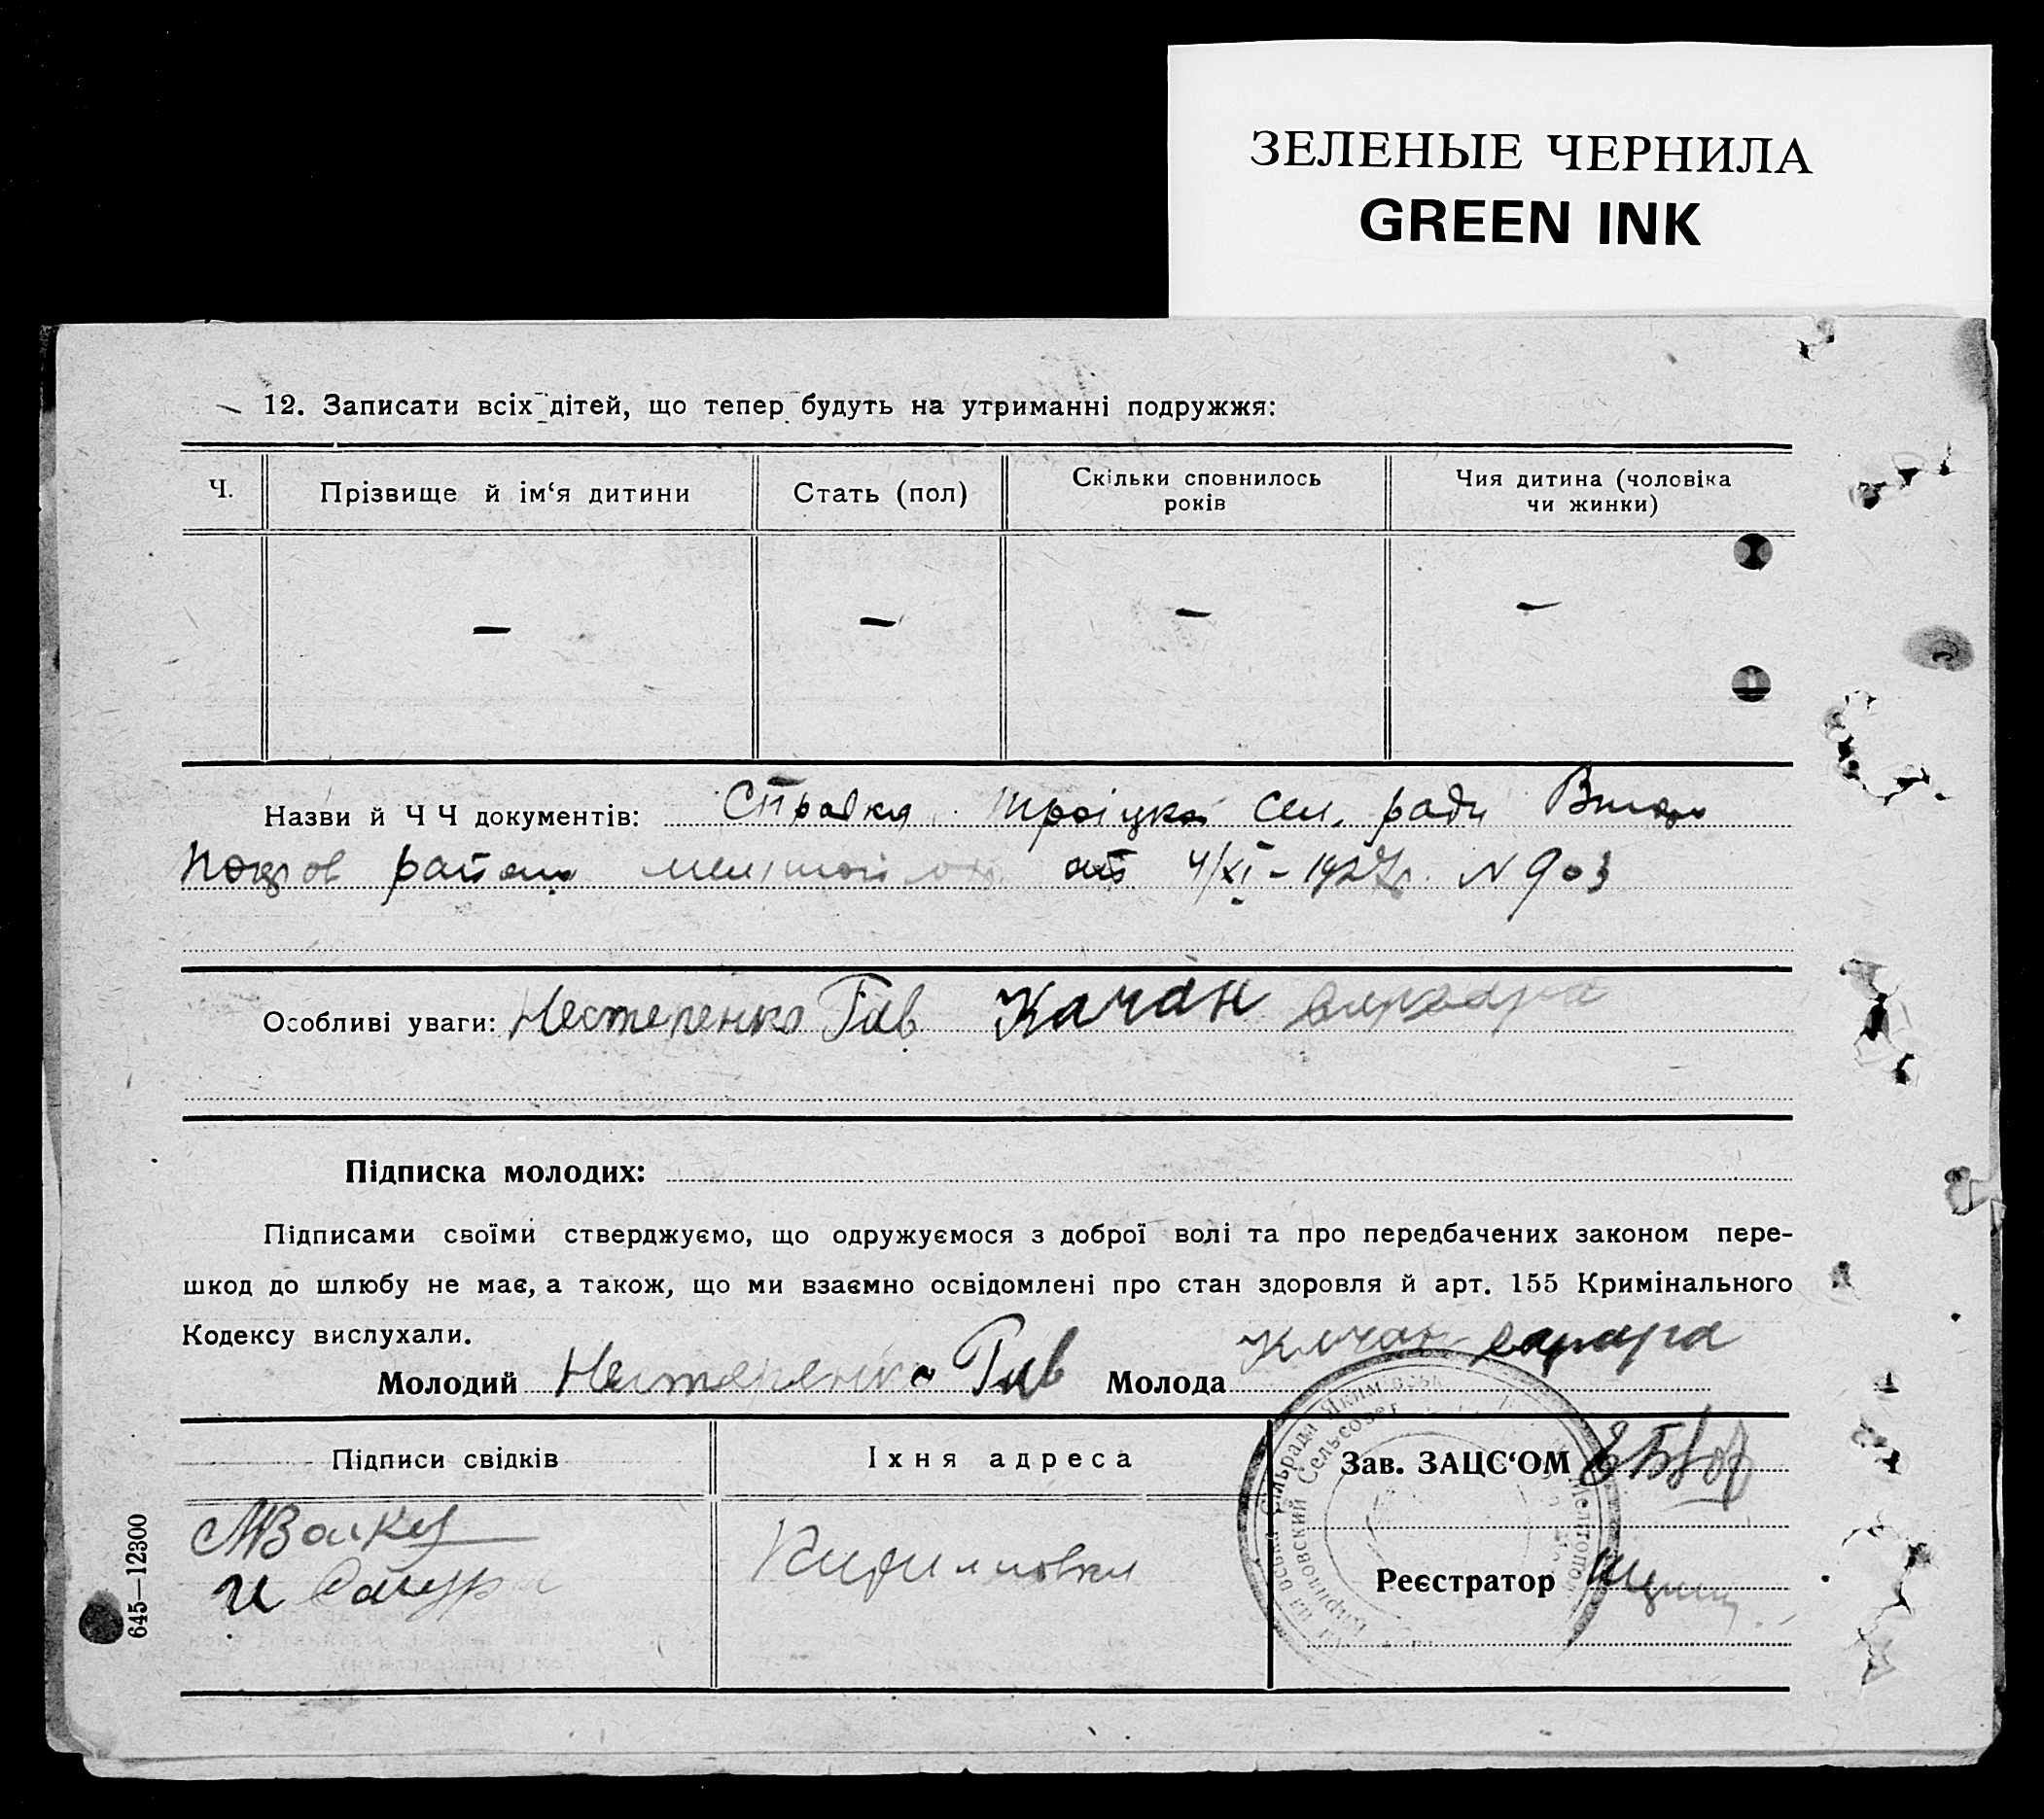 ЗЕЛЕНЫЕ ЧЕРНИЛА
GREEN INK
12. Записати всіх дітей, що тепер будуть на утриманні подружжя:
Ч. Прізвище й ім‘я дитини Стать (пол) Скільки сповнилось років Чия дитина (чоловіка чи жинки)
— — — —
Назви й Ч Ч документів: Справка Троіцкой сел. ради
района от 4/XI - 1927р. N 903
Особливі уваги: Нестеренко Гав Качан
Підписка молодих:
Підписами своїми стверджуємо, що одружуємося з доброї волі та про передбачених законом пере-
шкод до шлюбу не має, а також, що ми взаємно освідомлені про стан здоровля й арт. 155 Кримінального
Кодексу вислухали.
Молодий Нестеренко Гав Молода Качан
Підписи свідків Іхня адреса Зав. ЗАЦС‘ОМ
Кирилловка
Реєстратор
Сільрада Якимівськ
Кирилловский Сельсовет
645—12300